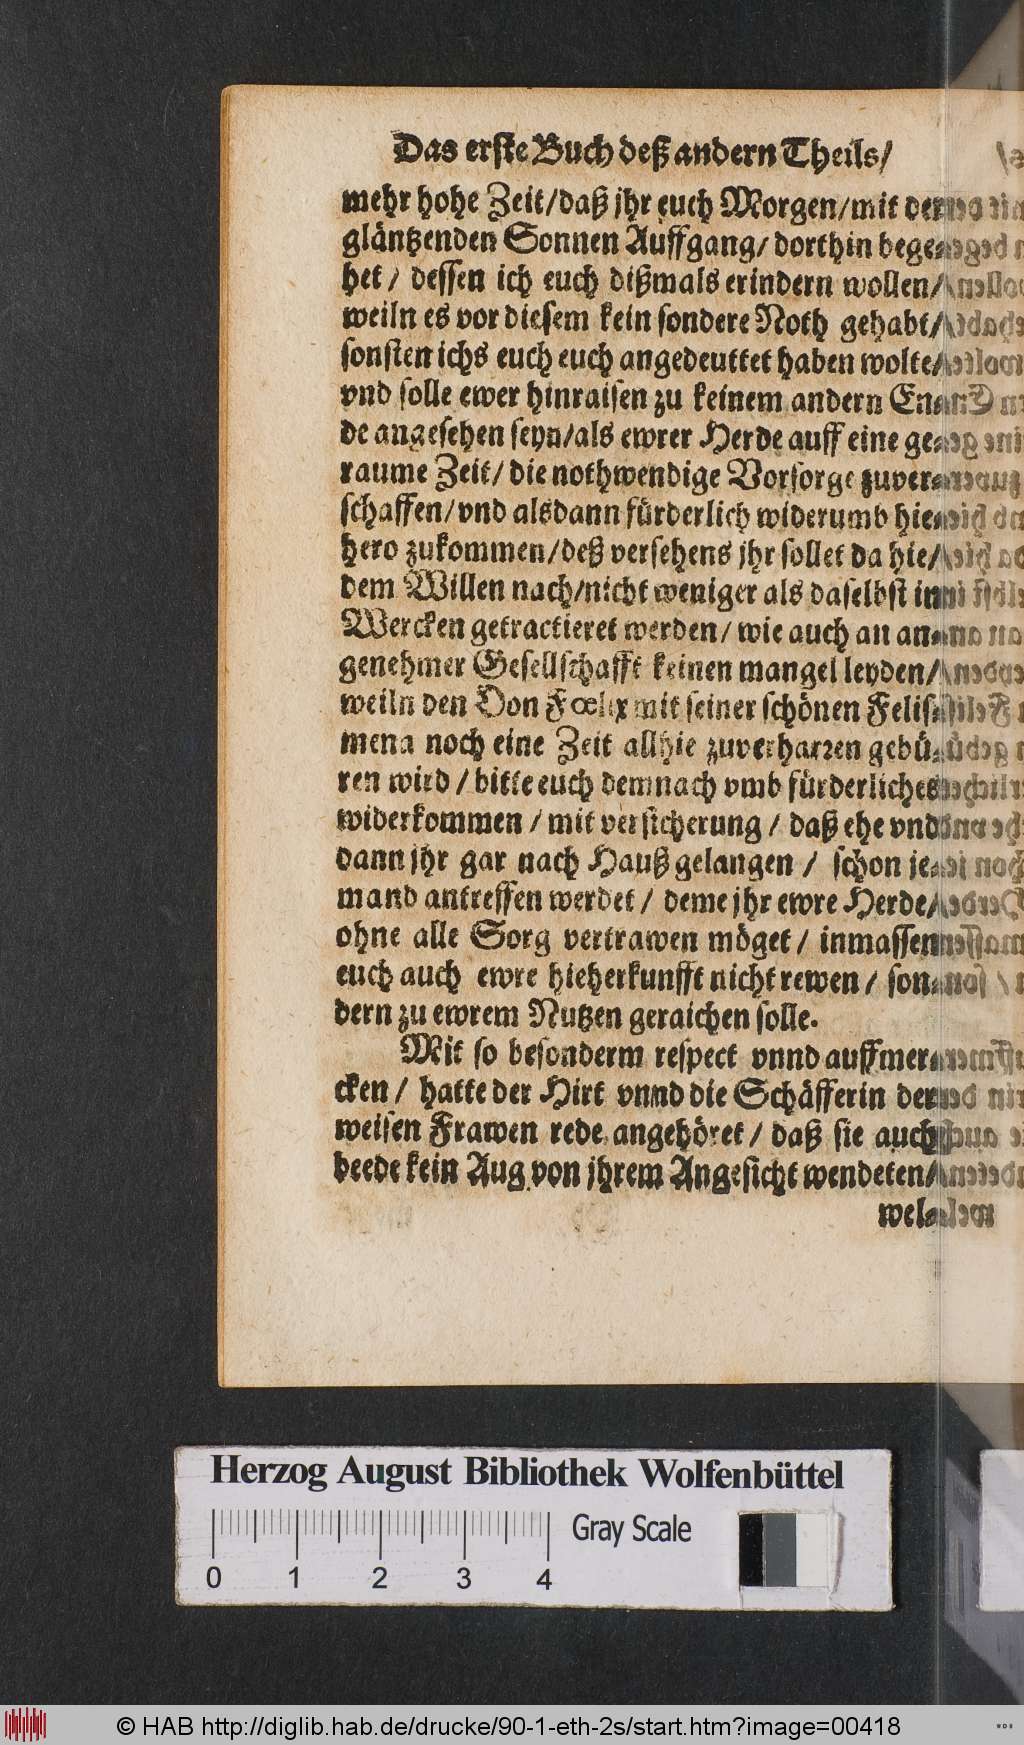 Das erste Buch deß andern Theils/
mehr hohe Zeit/daß jhr euch Morgen/mit der
gläntzenden Sonnen Auffgang/ dorthin bege-
bet/ dessen ich euch dißmals erindern wollen/
weiln es vor diesem kein sondere Noth gehabt/
sonsten ichs euch euch angedeuttet haben wolte/
vnd solle ewer hinraisen zu keinem andern En-
de angesehen seyn/als ewrer Herde auff eine ge-
raume Zeit/ die nothwendige Vorsorge zuver-
schaffen/vnd alsdann fürderlich widerumb hie-
hero zukommen/deß versehens jhr sollet da hie/
dem Willen nach/nicht weniger als daselbst in
Wercken getractieret werden/ wie auch an an-
genehmer Gesellschafft keinen mangel leyden/
weiln den Don Fœlix mit seiner schönen Felis-
mena noch eine Zeit allhie zuverharren gebü-
ren wird / bitte euch demnach vmb fürderliches
widerkommen / mit versicherung / daß ehe vnd
dann jhr gar nach Hauß gelangen / schon je-
mand antreffen werdet / deme jhr ewre Herde/
ohne alle Sorg vertrawen möget / inmassen
euch auch ewre hieherkunfft nicht rewen / son-
dern zu ewrem Nutzen geraichen solle.
Mit so besonderm respect vnnd auffmer-
cken / hatte der Hirt vnnd die Schäfferin der
weisen Frawen rede angehöret / daß sie auch
beede kein Aug von jhrem Angesicht wendeten/
wel-
Herzog August Bibliothek Wolfenbüttel
Gray Scale
0 1 2 3 4
© HAB http://diglib.hab.de/drucke/90-1-eth-2s/start.htm?image=00418